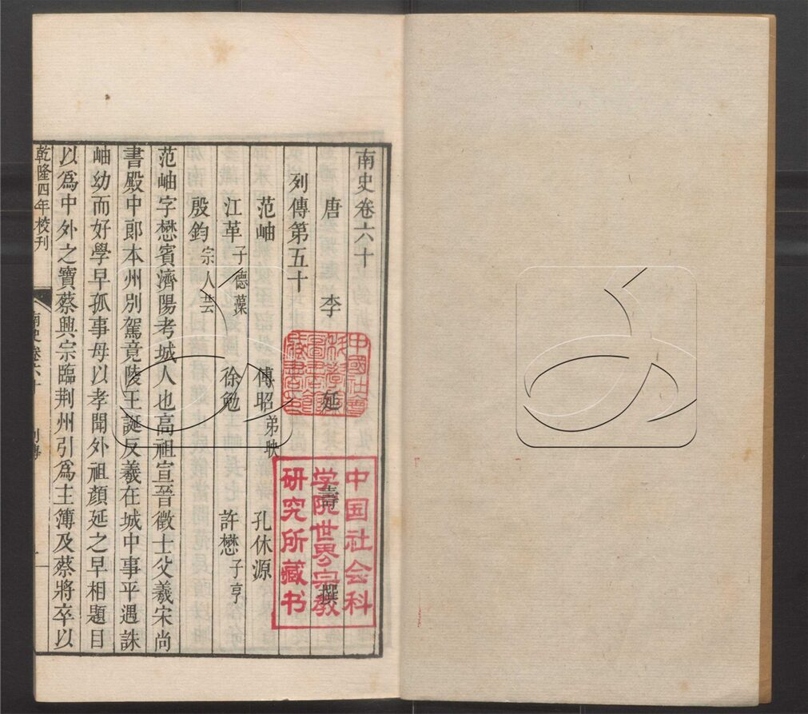 南史卷六十
唐 李 延 壽 撰
列傳第五十
范岫 傅昭弟映 孔休源
江革子德藻 徐勉 許懋子亨
殷鈞宗人芸
范岫字懋賓濟陽考城人也高祖宣晉徵士父羲宋尚
書殿中郎本州別駕竟陵王誕反羲在城中事平遇誅
岫幼而好學早孤事母以孝聞外祖顏延之早相題目
以爲中外之寶蔡興宗臨荆州引爲主簿及蔡將卒以
乾隆四年校刊
南史卷六十
中國社會
中国社会科
学院世界宗教
研究所藏书